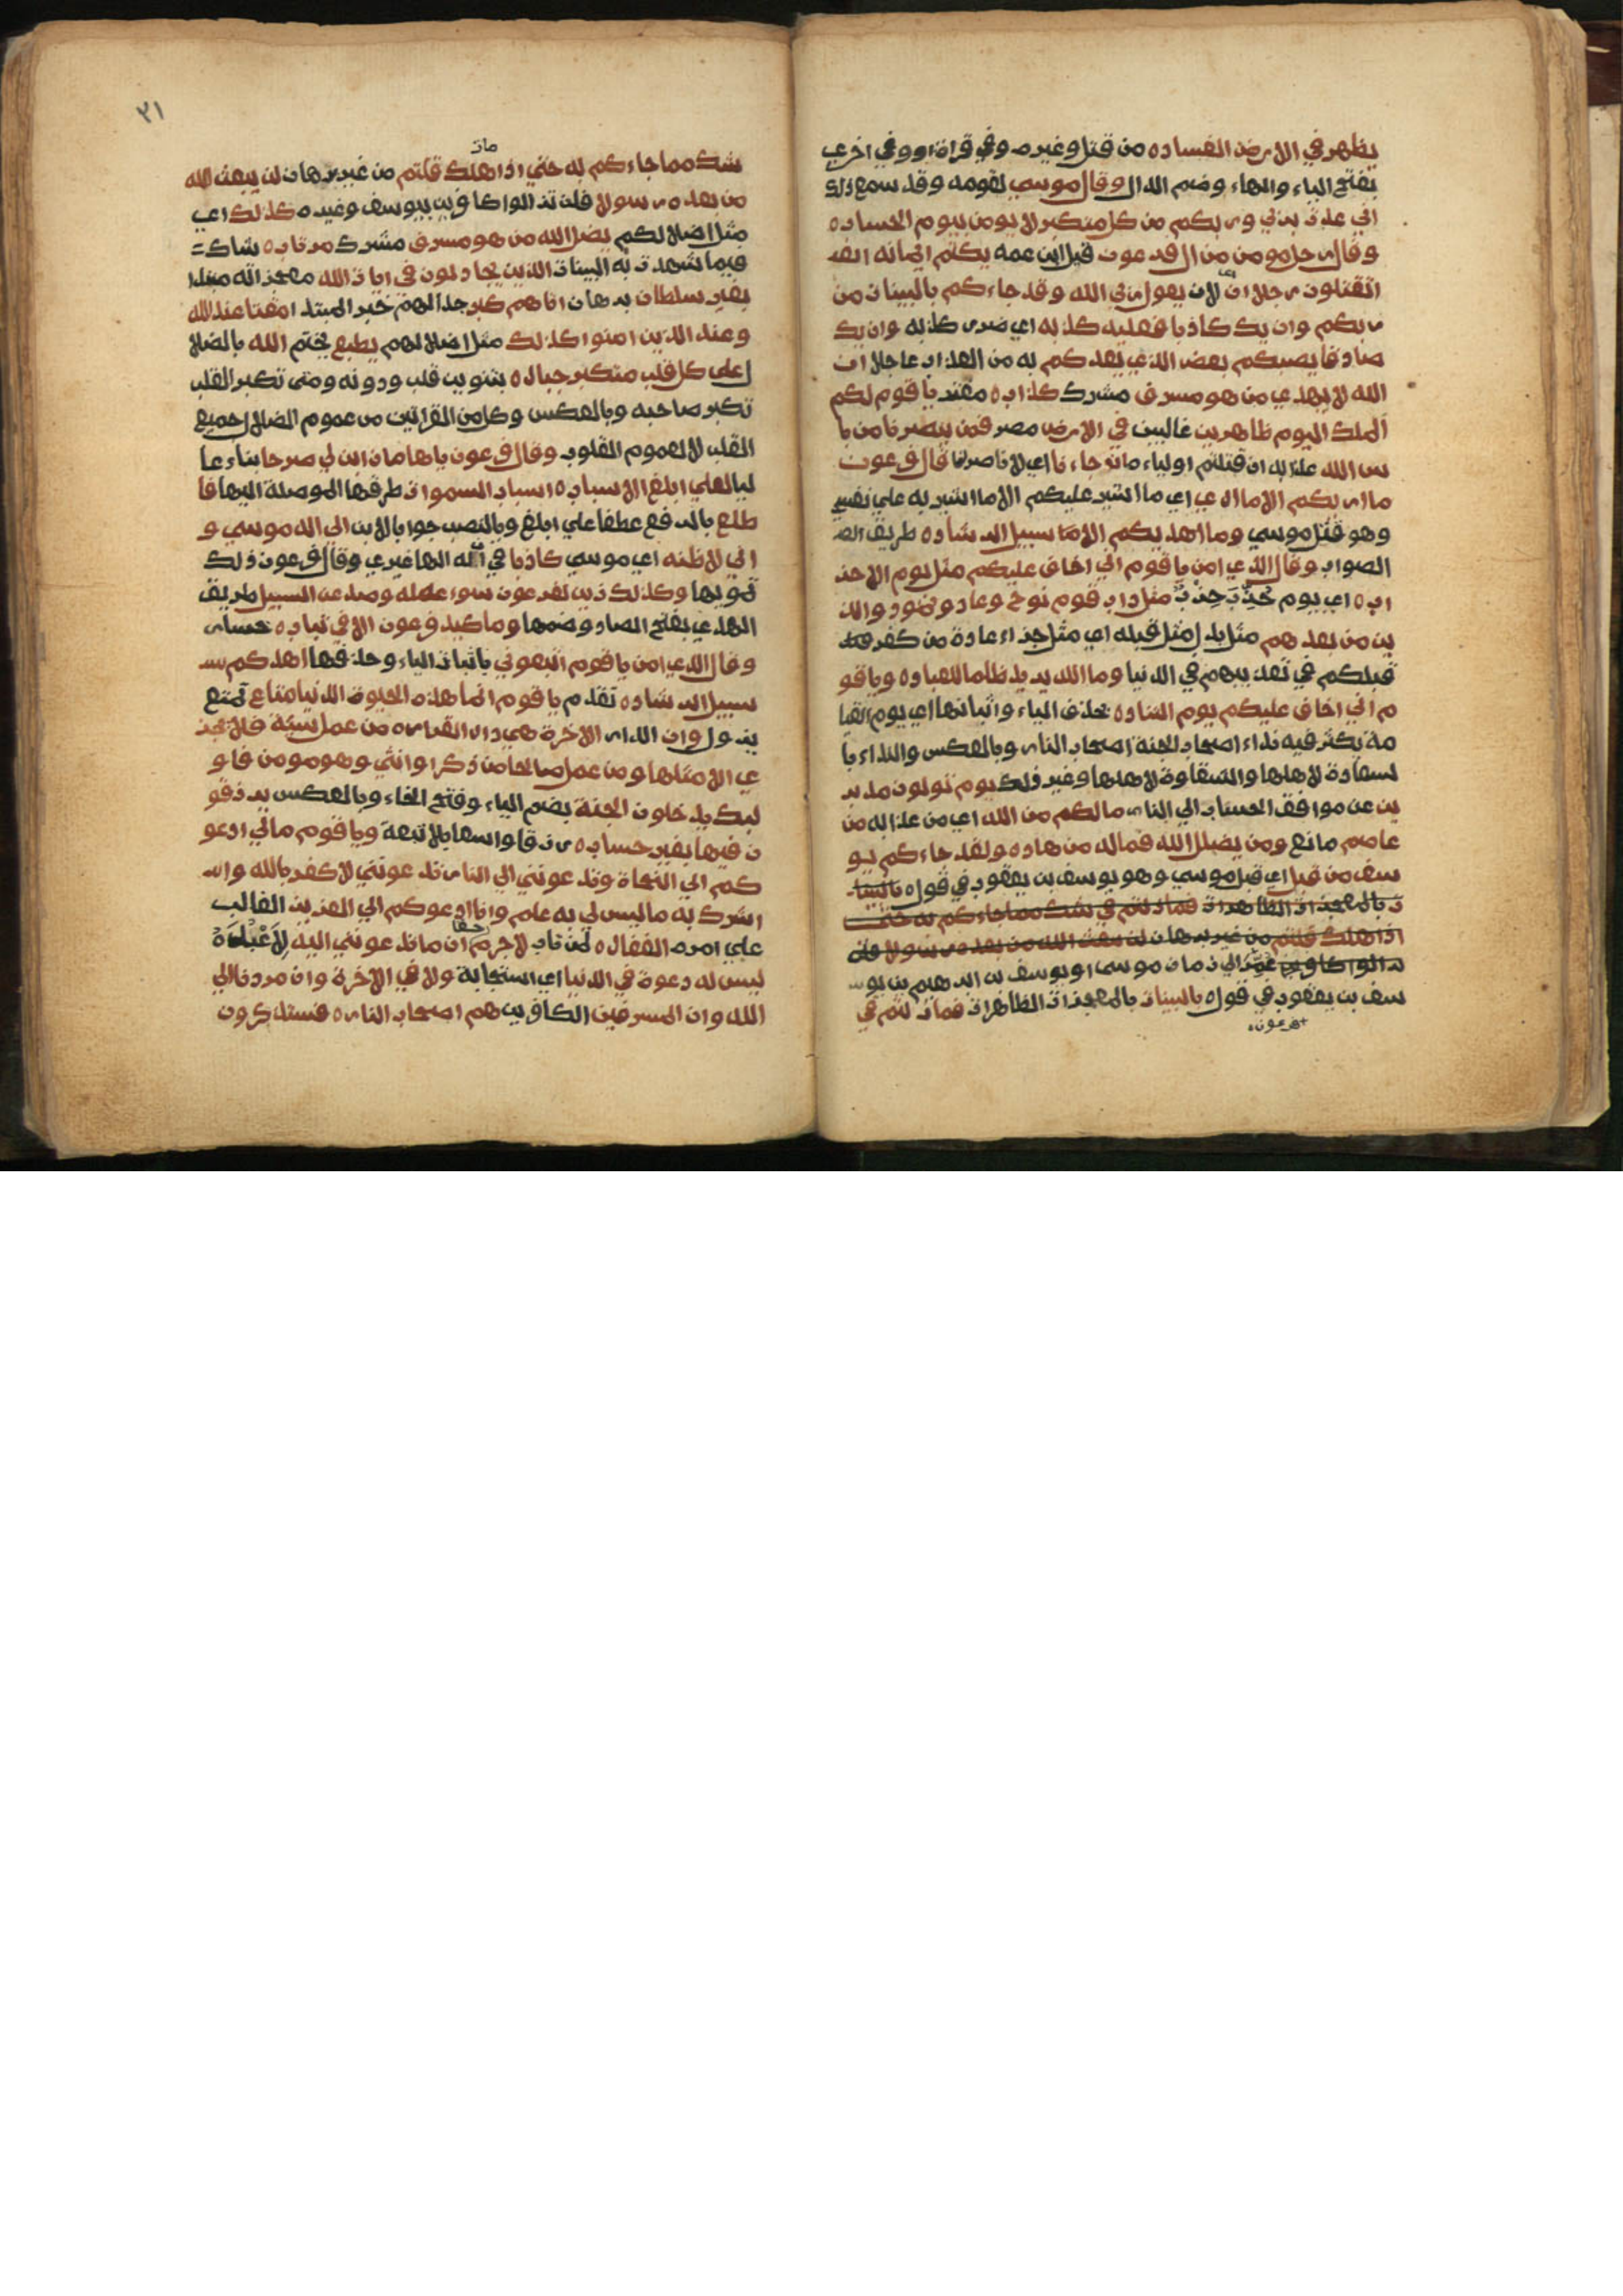 يظهر في الارض الفساد ه من قتل وغيره وفي قراة او وفي اخري
بفتح الياء والهاء وضم الدال وقال موسي لقومه وقد سمع ذلك
اني عذت بربي وربكم من كل متكبر لا يومن بيوم الحساب ه
وقال رجل مومن من ال فرعون قيل ابن عمه يكتم ايمانه
اتقتلون رجلا ان اي لان يقول ربي الله وقد جاءكم بالبينات من
ربكم وان يك كاذبا فعليه كذبه اي ضرر كذبه وان يك
صادقا يصبكم بعض الذي يعدكم به من العذاب عاجلا ان
الله لا يهدي من هو مسرف مشرك كذاب ه مفتر يا قوم لكم
الملك اليوم ظاهرين غالبين في الارض مصر فمن ينصرنا من با
س الله عذابه ان قتلتم اولياءه ان جاءنا اي لا ناصر لنا قال فرعون
ما اريكم الا ما اري اي ما اشير عليكم الا ما اشير به علي نفسي
وهو قتل موسي وما اهديكم الا سبيل الرشاد ه طريق
الصواب وقال الذي امن يا قوم اني اخاف عليكم مثل يوم الاحز
اب ه اي يوم حزب حزب مثل داب قوم نوح وعاد وثمود والذ
ين من بعدهم مثل بدل مثل قبله اي مثل جزاء عادة من كفر
قبلكم في تعذيبهم في الدنيا وما الله يريد ظلما للعباد ه ويا قو
م اني اخاف عليكم يوم التناد ه بحذف الياء واثباتها اي يوم القيا
مة يكثر فيه نداء اصحاب الجنة اصحاب النار وبالعكس والنداء با
لسعادة لاهلها والشقاوة لاهلها وغير ذلك يوم تولون مدبر
ين عن موافق الحساب الي النار ما لكم من الله اي من عذابه من
عاصم مانع ومن يضلل الله فماله من هاد ه ولقد جاءكم يو
سف من قبل اي قبل موسي وهو يوسف بن يعقوب في قول بالبينا
ت بالمعجزات الظاهرات فمازلتم في شك مما جاءكم به حتي
اذا هلك قلتم من غير برهان لن يبعث الله من بعده رسولا فلن
تزالوا كافرين عمر الي زمان موسي او يوسف بن ابرهيم بن يو
سف بن يعقوب في قول بالبينات بالمعجزات الظاهرات فمازلتم في
فرعون
٣١
مات
شك مما جاءكم به حتي اذا هلك قلتم من غير برهان لن يبعث الله
من بعده رسولا فلن تزالوا كافرين بيوسف وغيره كذلك اي
مثل اضلالكم يضل الله من هو مسرف مشرك مرتاب ه شاك
فيما شهدت به البينات الذين يجادلون في ايات الله معجزاته مبتدا
بغير سلطان برهان اتاهم كبر جدالهم خبر المبتدا مقتا عند الله
وعند الذين امنوا كذلك مثل اضلالهم يطبع يختم الله بالضلا
ل علي كل قلب متكبر جبار ه بتنوين قلب ودونه ومتي تكبر القلب
تكبر صاحبه وبالعكس وكل من القراتين من عموم الضلال جميع
القلب لا لعموم القلوب وقال فرعون يا هامان ابن لي صرحا بناء عا
ليا لعلي ابلغ الاسباب ه اسباب السموات طرقها الموصلة اليها فا
طلع بالرفع عطفا علي ابلغ وبالنصب جوابا لابن الي اله موسي و
اني لاظنه اي موسي كاذبا في ان له الها غيري وقال فرعون ذلك
تمويها وكذلك زين لفرعون سوء عمله وصد عن السبيل طريق
الهدي بفتح الصاد وضمها وما كيد فرعون الا في تباب ه خسار
وقال الذي امن يا قوم اتبعوني باثبات الياء وحذفها اهدكم
سبيل الرشاد ه تقدم يا قوم انما هذه الحيوة الدنيا متاع تمتع
يزول وان الدار الاخرة هي دار القرار ه من عمل سيئة فلا يجز
ي الا مثلها ومن عمل صالحا من ذكر او انثي وهو مومن فاو
ليك يدخلون الجنة بضم الياء وفتح الخاء وبالعكس يرزقو
ن فيها بغير حساب ه رزقا واسعا بلا تبعة ويا قوم مالي ادعو
كم الي النجاة وتدعونني الي النار تدعونني لاكفر بالله وا
شرك به ما ليس لي به علم وانا ادعوكم الي العزيز الغالب
علي امره الغفار ه لمن تاب لا جرم حقا ان ما تدعونني اليه لاعبده
ليس له دعوة في الدنيا اي استجابة ولا في الاخرة وان مردنا الي
الله وان المسرفين الكافرين هم اصحاب النار ه فستذكرون